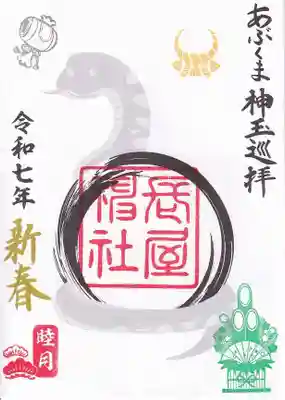 あぶくま神玉巡拝
長屋
神社
令和七年
新春
睦月